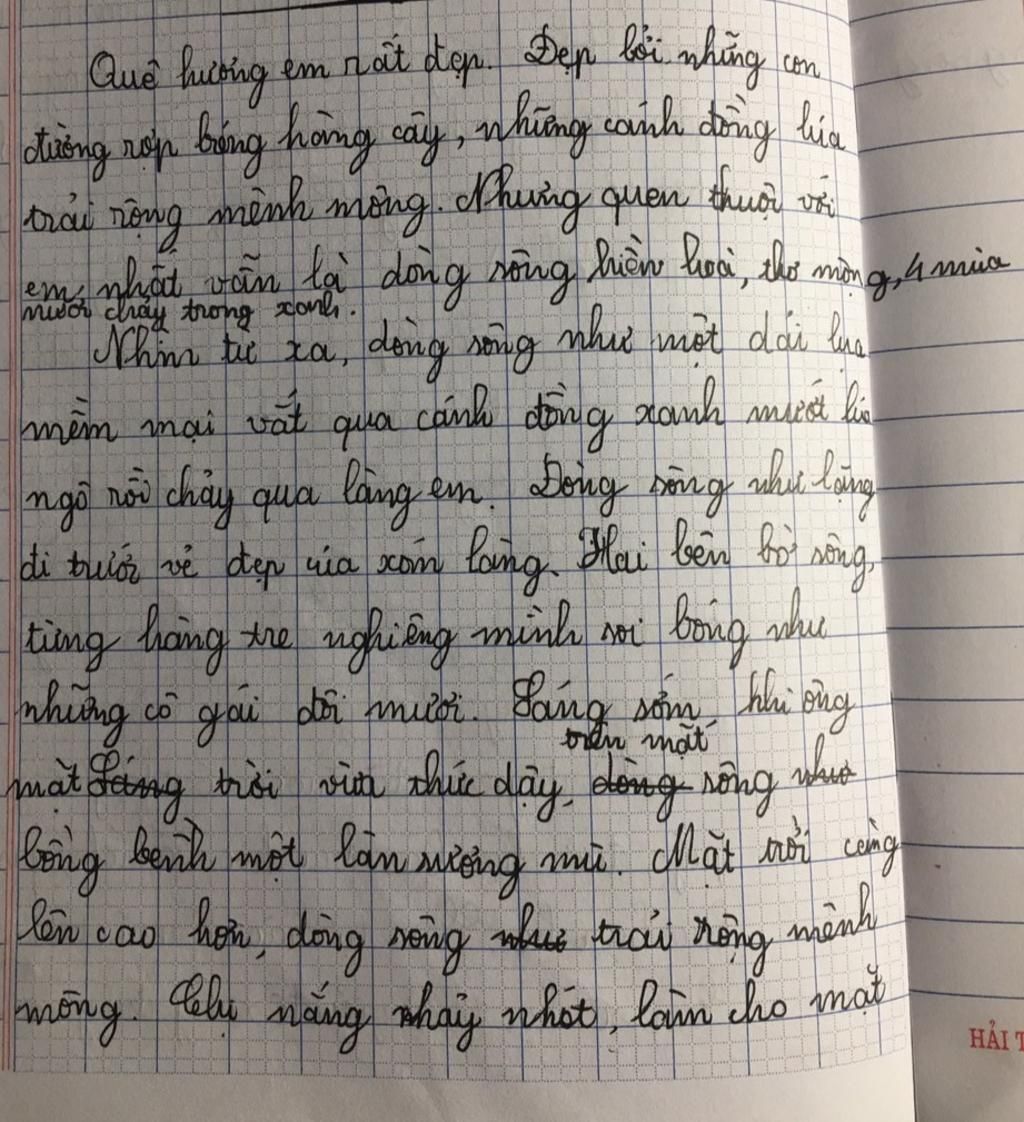 Quê hương em rất đẹp. Đẹp bởi những con
đường rợp bóng hàng cây, những cánh đồng lúa
trải rộng mênh mông. Nhưng quen thuộc với
em nhất vẫn là dòng sông hiền hoà, thơ mộng, 4 mùa
nước chảy trong xanh.
Nhìn từ xa, dòng sông như một dải lụa
mềm mại vắt qua cánh đồng xanh mướt lúa
ngô rồi chảy qua làng em. Dòng sông như lặng
đi trước vẻ đẹp của xóm làng. Hai bên bờ sông,
từng hàng tre nghiêng mình soi bóng như
những cô gái đôi mươi. Sáng sớm, khi ông
trên mặt
mặt sáng trời vừa thức dậy, dòng sông như
bồng bềnh một làn sương mù. Mặt trời càng
lên cao hơn, dòng sông như trải rộng mênh
mông. Chị nắng nhảy nhót, làm cho mặt
HẢI T